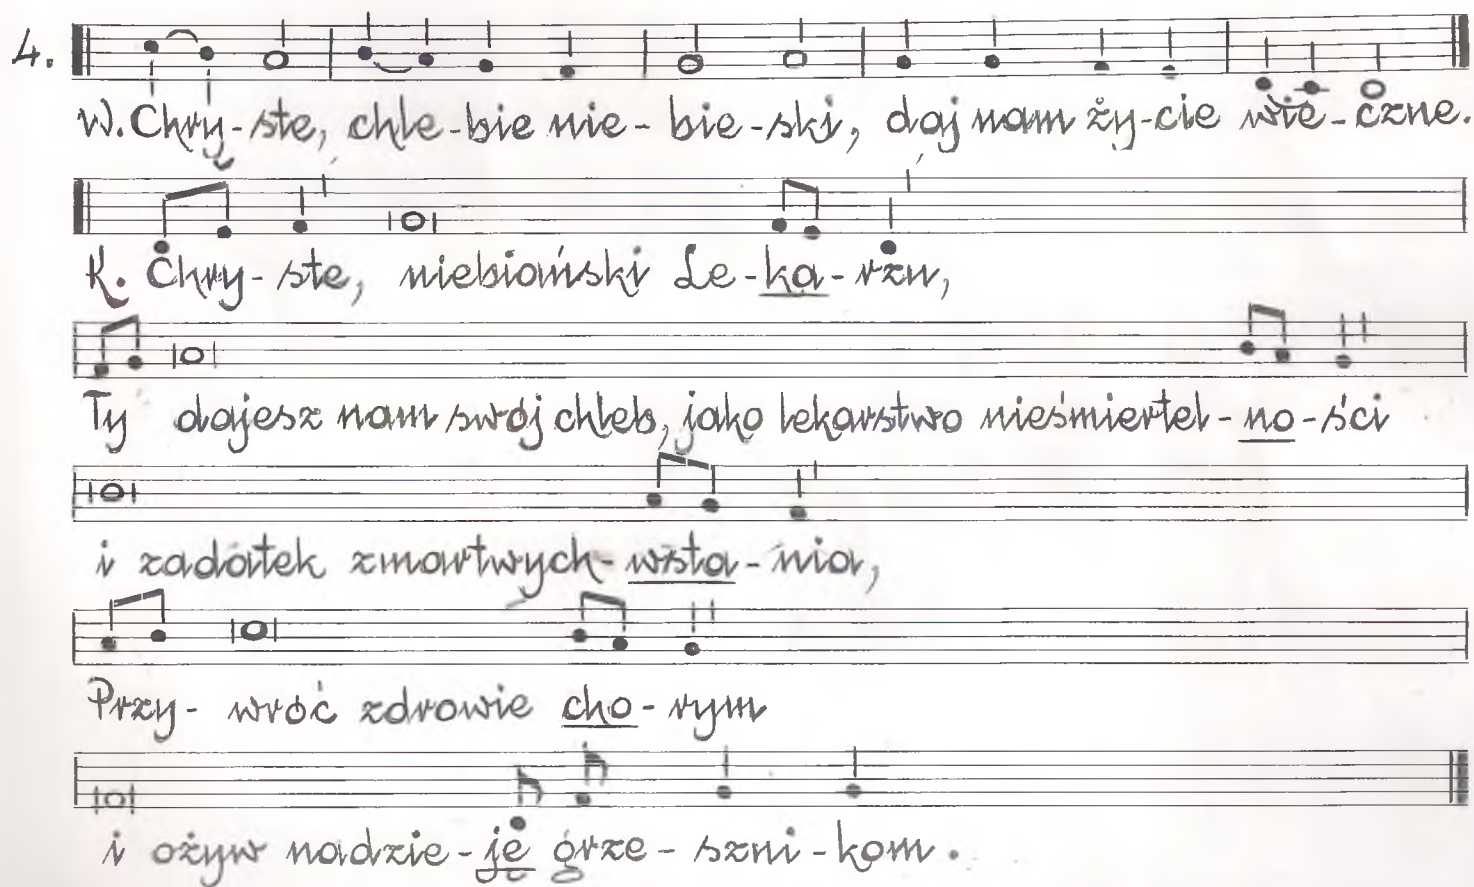 4.
W. Chry-ste, chle-bie nie-bie-ski, daj nam ży-cie wie-czne.
K. Chry-ste, niebiański Le-ka-rzu,
Ty dajesz nam swój chleb, jako lekarstwo nieśmiertel-no-ści
i zadatek zmartwych-wsta-nia,
Przy-wróć zdrowie cho-rym
i ożyw nadzie-je grze-szni-kom.